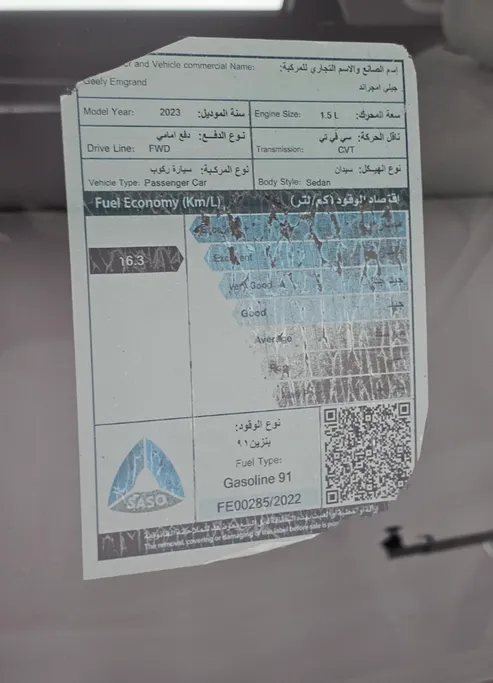 er and Vehicle commercial Name: إسم الصانع والاسم التجاري للمركبة:
Geely Emgrand جيلي امجراند
Model Year: 2023 سنة الموديل: Engine Size: 1.5 L سعة المحرك:
نوع الدفع: دفع امامي ناقل الحركة: سي في تي
Drive Line: FWD Transmission: CVT
نوع المركبة: سيارة ركوب نوع الهيكل: سيدان
Vehicle Type: Passenger Car Body Style: Sedan
Fuel Economy (Km/L) إقتصاد الوقود (كم/لتر)
16.3
Excellent
Very Good
Good
Average
نوع الوقود:
بنزين ٩١
Fuel Type:
Gasoline 91
SASO
FE00285/2022
The removal, covering or damaging of this label before sale is